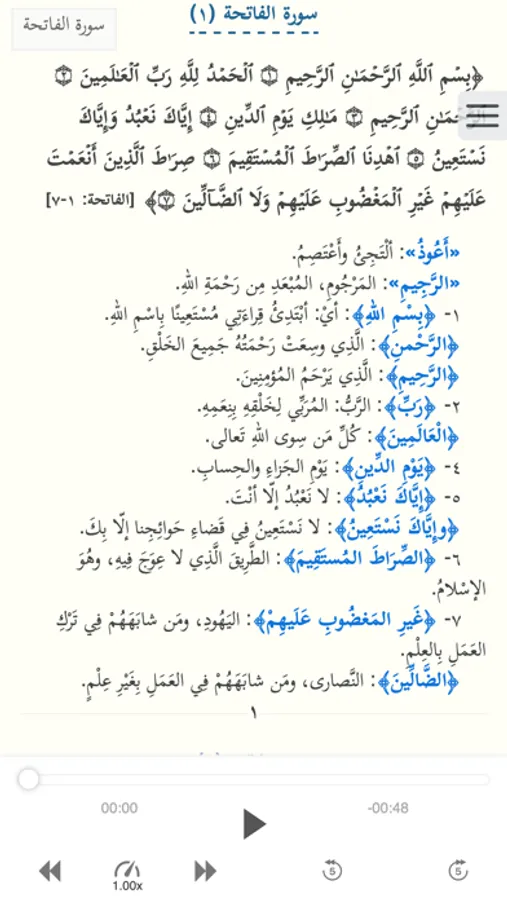 سورة الفاتحة (١)
سورة الفاتحة
﴿بِسۡمِ ٱللَّهِ ٱلرَّحۡمَٰنِ ٱلرَّحِيمِ ۝١ ٱلۡحَمۡدُ لِلَّهِ رَبِّ ٱلۡعَٰلَمِينَ ۝٢
ٱلرَّحۡمَٰنِ ٱلرَّحِيمِ ۝٣ مَٰلِكِ يَوۡمِ ٱلدِّينِ ۝٤ إِيَّاكَ نَعۡبُدُ وَإِيَّاكَ
نَسۡتَعِينُ ۝٥ ٱهۡدِنَا ٱلصِّرَٰطَ ٱلۡمُسۡتَقِيمَ ۝٦ صِرَٰطَ ٱلَّذِينَ أَنۡعَمۡتَ
عَلَيۡهِمۡ غَيۡرِ ٱلۡمَغۡضُوبِ عَلَيۡهِمۡ وَلَا ٱلضَّآلِّينَ ۝٧﴾ [الفاتحة: ١-٧]
«أَعُوذُ»: أَلْتَجِئُ وأَعْتَصِمُ.
«الرَّجِيمِ»: المَرْجُومِ، المُبْعَدِ مِن رَحْمَةِ اللهِ.
١- ﴿بِسْمِ اللهِ﴾: أيْ: أبْتَدِئُ قِراءَتِي مُسْتَعِينًا بِاسْمِ اللهِ.
﴿الرَّحْمنِ﴾: الَّذِي وسِعَتْ رَحْمَتُهُ جَمِيعَ الخَلْقِ.
﴿الرَّحِيمِ﴾: الَّذِي يَرْحَمُ المُؤْمِنِينَ.
٢- ﴿رَبِّ﴾: الرَّبُّ: المُرَبِّي لِخَلْقِهِ بِنِعَمِهِ.
﴿الْعَالَمِينَ﴾: كُلِّ مَن سِوى اللهِ تَعالى.
٤- ﴿يَوْمِ الدِّينِ﴾: يَوْمِ الجَزاءِ والحِسابِ.
٥- ﴿إيَّاكَ نَعْبُدُ﴾: لا نَعْبُدُ إلّا أنْتَ.
﴿وإيَّاكَ نَسْتَعِينُ﴾: لا نَسْتَعِينُ فِي قَضاءِ حَوائِجِنا إلّا بِكَ.
٦- ﴿الصِّرَاطَ المُستَقِيمَ﴾: الطَّرِيقَ الَّذِي لا عِوَجَ فِيهِ، وهُوَ
الإسْلامُ.
٧- ﴿غَيرِ المَغضُوبِ عَلَيهِمْ﴾: اليَهُودِ، ومَن شابَهَهُمْ فِي تَرْكِ
العَمَلِ بِالعِلْمِ.
﴿الضَّالِّينَ﴾: النَّصارى، ومَن شابَهَهُمْ فِي العَمَلِ بِغَيْرِ عِلْمٍ.
١
00:00
-00:48
1.00x
5
5